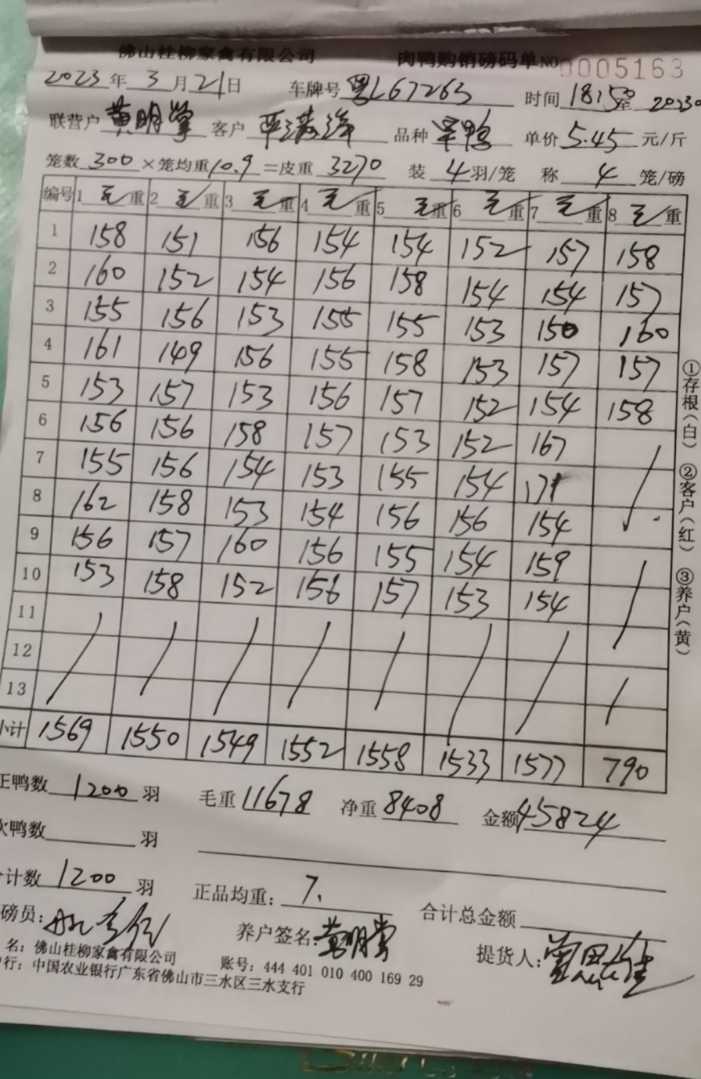 佛山桂柳家禽有限公司 肉鸭购销磅码单 NO 0005163
2023年3月21日 车牌号 粤L67263 时间 18:50
联营户 客户 品种 单价 5.45 元/斤
笼数 300 ×笼均重 10.9 =皮重 3270 装 4 羽/笼 称 4 笼/磅
编号 1 毛重 2 毛重 3 毛重 4 毛重 5 毛重 6 毛重 7 毛重 8 毛重
1 158 151 156 154 154 152 157 158
2 160 152 154 156 158 154 154 157
3 155 156 153 155 155 153 150 160
4 161 149 156 155 158 153 157 157
5 153 157 153 156 157 152 154 158
6 156 156 158 157 153 152 167
7 155 156 154 153 155 154 171
8 162 158 153 154 156 156 154
9 156 157 160 156 155 154 159
10 153 158 152 156 157 153 154
11
12
13
小计 1569 1550 1549 1552 1558 1533 1577 790
正鸭数 1200 羽 毛重 11678 净重 8408 金额 45824
次鸭数 羽
合计数 1200 羽 正品均重: 7. 合计总金额
磅员: 养户签名: 提货人:
名: 佛山桂柳家禽有限公司 账号: 444 401 010 400 169 29
行: 中国农业银行广东省佛山市三水区三水支行
①存根(白) ②客户(红) ③养户(黄)